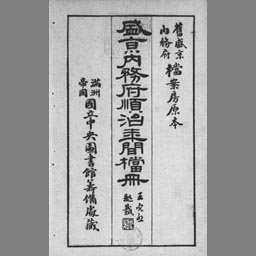 舊盛京
內務府
檔案房原本
盛京內務府順治年間檔冊
滿洲
帝國
國立中央圖書館籌備處藏